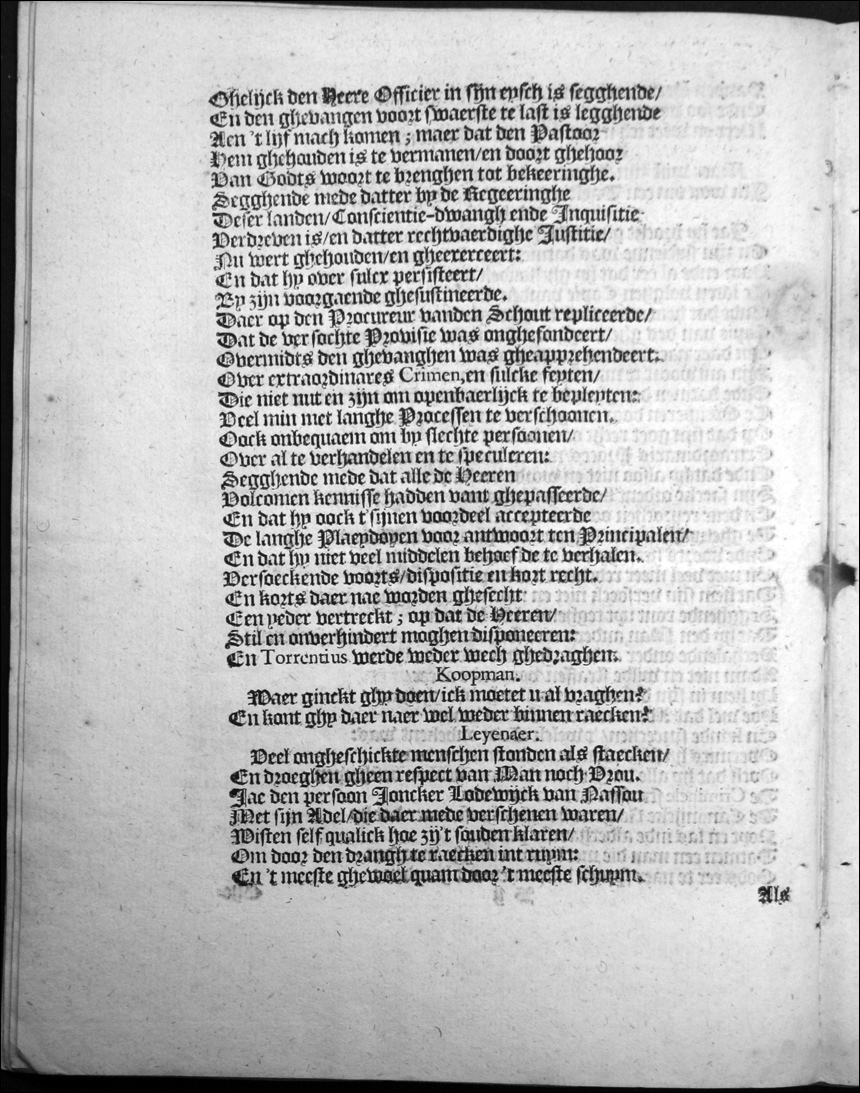 Ghelijck den Heere Officier in sijn eysch is segghende/
En den ghevangen voort swaerste te last is legghende
Aen 't lijf mach komen; maer dat den Pastoor
Hem ghehouden is te vermanen/en doort ghehoor
Van Godts woort te brenghen tot bekeeringhe.
Segghende mede datter by de Regeeringhe
Deser landen/Conscientie-dwangh ende Inquisitie
Verdreven is/en datter rechtvaerdighe Justitie/
Nu wert ghehouden/en gheexerceert:
En dat hy over sulcx persisteert/
By zijn voorgaende ghesustineerde.
Daer op den Procureur vanden Schout repliceerde/
Dat de versochte Provisie was onghefondeert/
Overmidts den ghevanghen was gheapprehendeert.
Over extraordinares Crimen,en sulcke feyten/
Die niet nut en zijn om openbaerlijck te bepleyten:
Veel min met langhe Processen te verschoonen.
Oock onbequaem om by slechte persoonen/
Over al te verhandelen en te speculeren:
Segghende mede dat alle de Heeren
Volcomen kennisse hadden vant ghepasseerde/
En dat hy oock t'sijnen voordeel accepteerde
De langhe Plaeydoyen voor antwoort ten Principalen/
En dat hy niet veel middelen behoefde te verhalen.
Versoeckende voorts/dispositie en kort recht.
En korts daer nae worden ghesecht
Een yeder vertreckt; op dat de Heeren/
Stil en onverhindert moghen disponeeren:
En Torrentius werde weder wech ghedraghen.
Koopman.
Waer ginckt ghy doen/ick moetet u al vraghen?
En kont ghy daer naer wel weder binnen raecken?
Leyenaer.
Veel ongheschickte menschen stonden als staecken/
En droeghen gheen respect van Man noch Vrou.
Jae den persoon Joncker Lodewijck van Nassou
Met sijn Adel/die daer mede verschenen waren/
Wisten self qualick hoe zy't souden klaren/
Om door den drangh te raecken int ruym:
En 't meeste ghewoel quam door 't meeste schuym.
Als